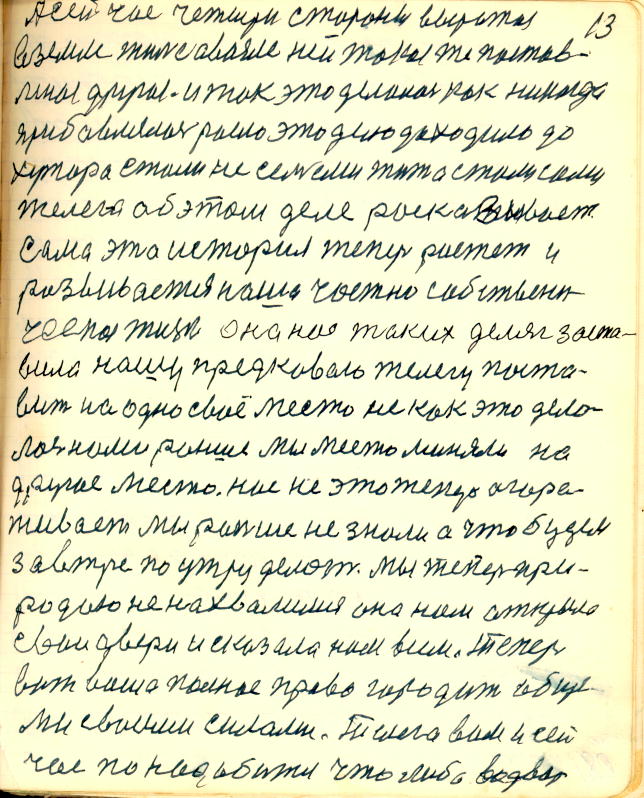 13
А сей час четыри стороны вырыты
в земле тинсаваяле ней такое же постав-
линое другое. и так это делоноя как никогда
прибавлялоя росло это дело доходило до
хутора стали не семеми жита стали сами
телега об этом деле росказывоет
сама эта история тепер ростет и
розвиваетия наша чостно собствен-
ческоя тизн она нос таких делят заста-
вила нашу предковаю телегу поста-
вит на одно своё место не как это дело-
лоя нами ранше мы место миняли на
другое место. нос не это тепер огора-
живает мы ранше не знали а что будем
завтре по утру делот. мы тепер при-
родою не нахвалимия она нам открыла
свои двери и сказала нам всим. Тепер
вот ваша полное право городит общи-
ми своими силами. Телега вам и сей
час понадобитя что либо водвор